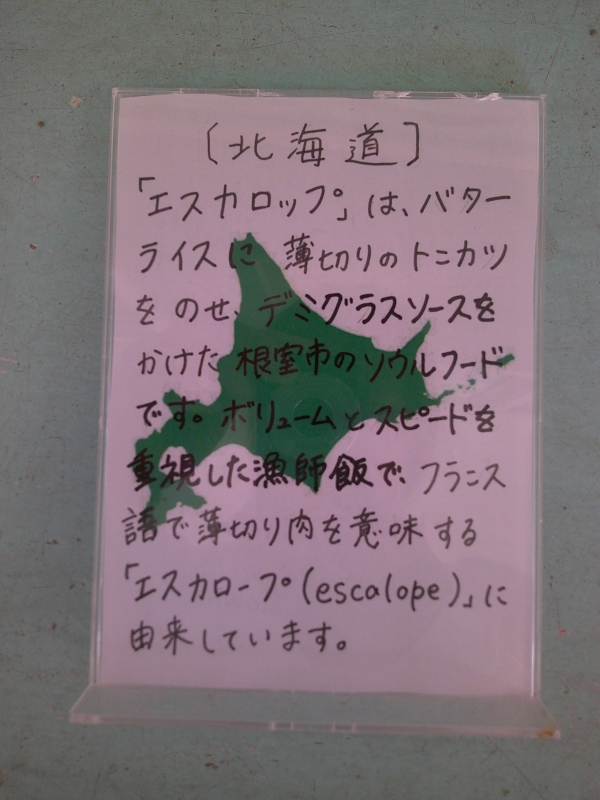 〔北海道〕
「エスカロップ」は、バター
ライスに薄切りのトンカツ
をのせ、デミグラスソースを
かけた根室市のソウルフード
です。ボリュームとスピードを
重視した漁師飯で、フランス
語で薄切り肉を意味する
「エスカロープ(escalope)」に
由来しています。